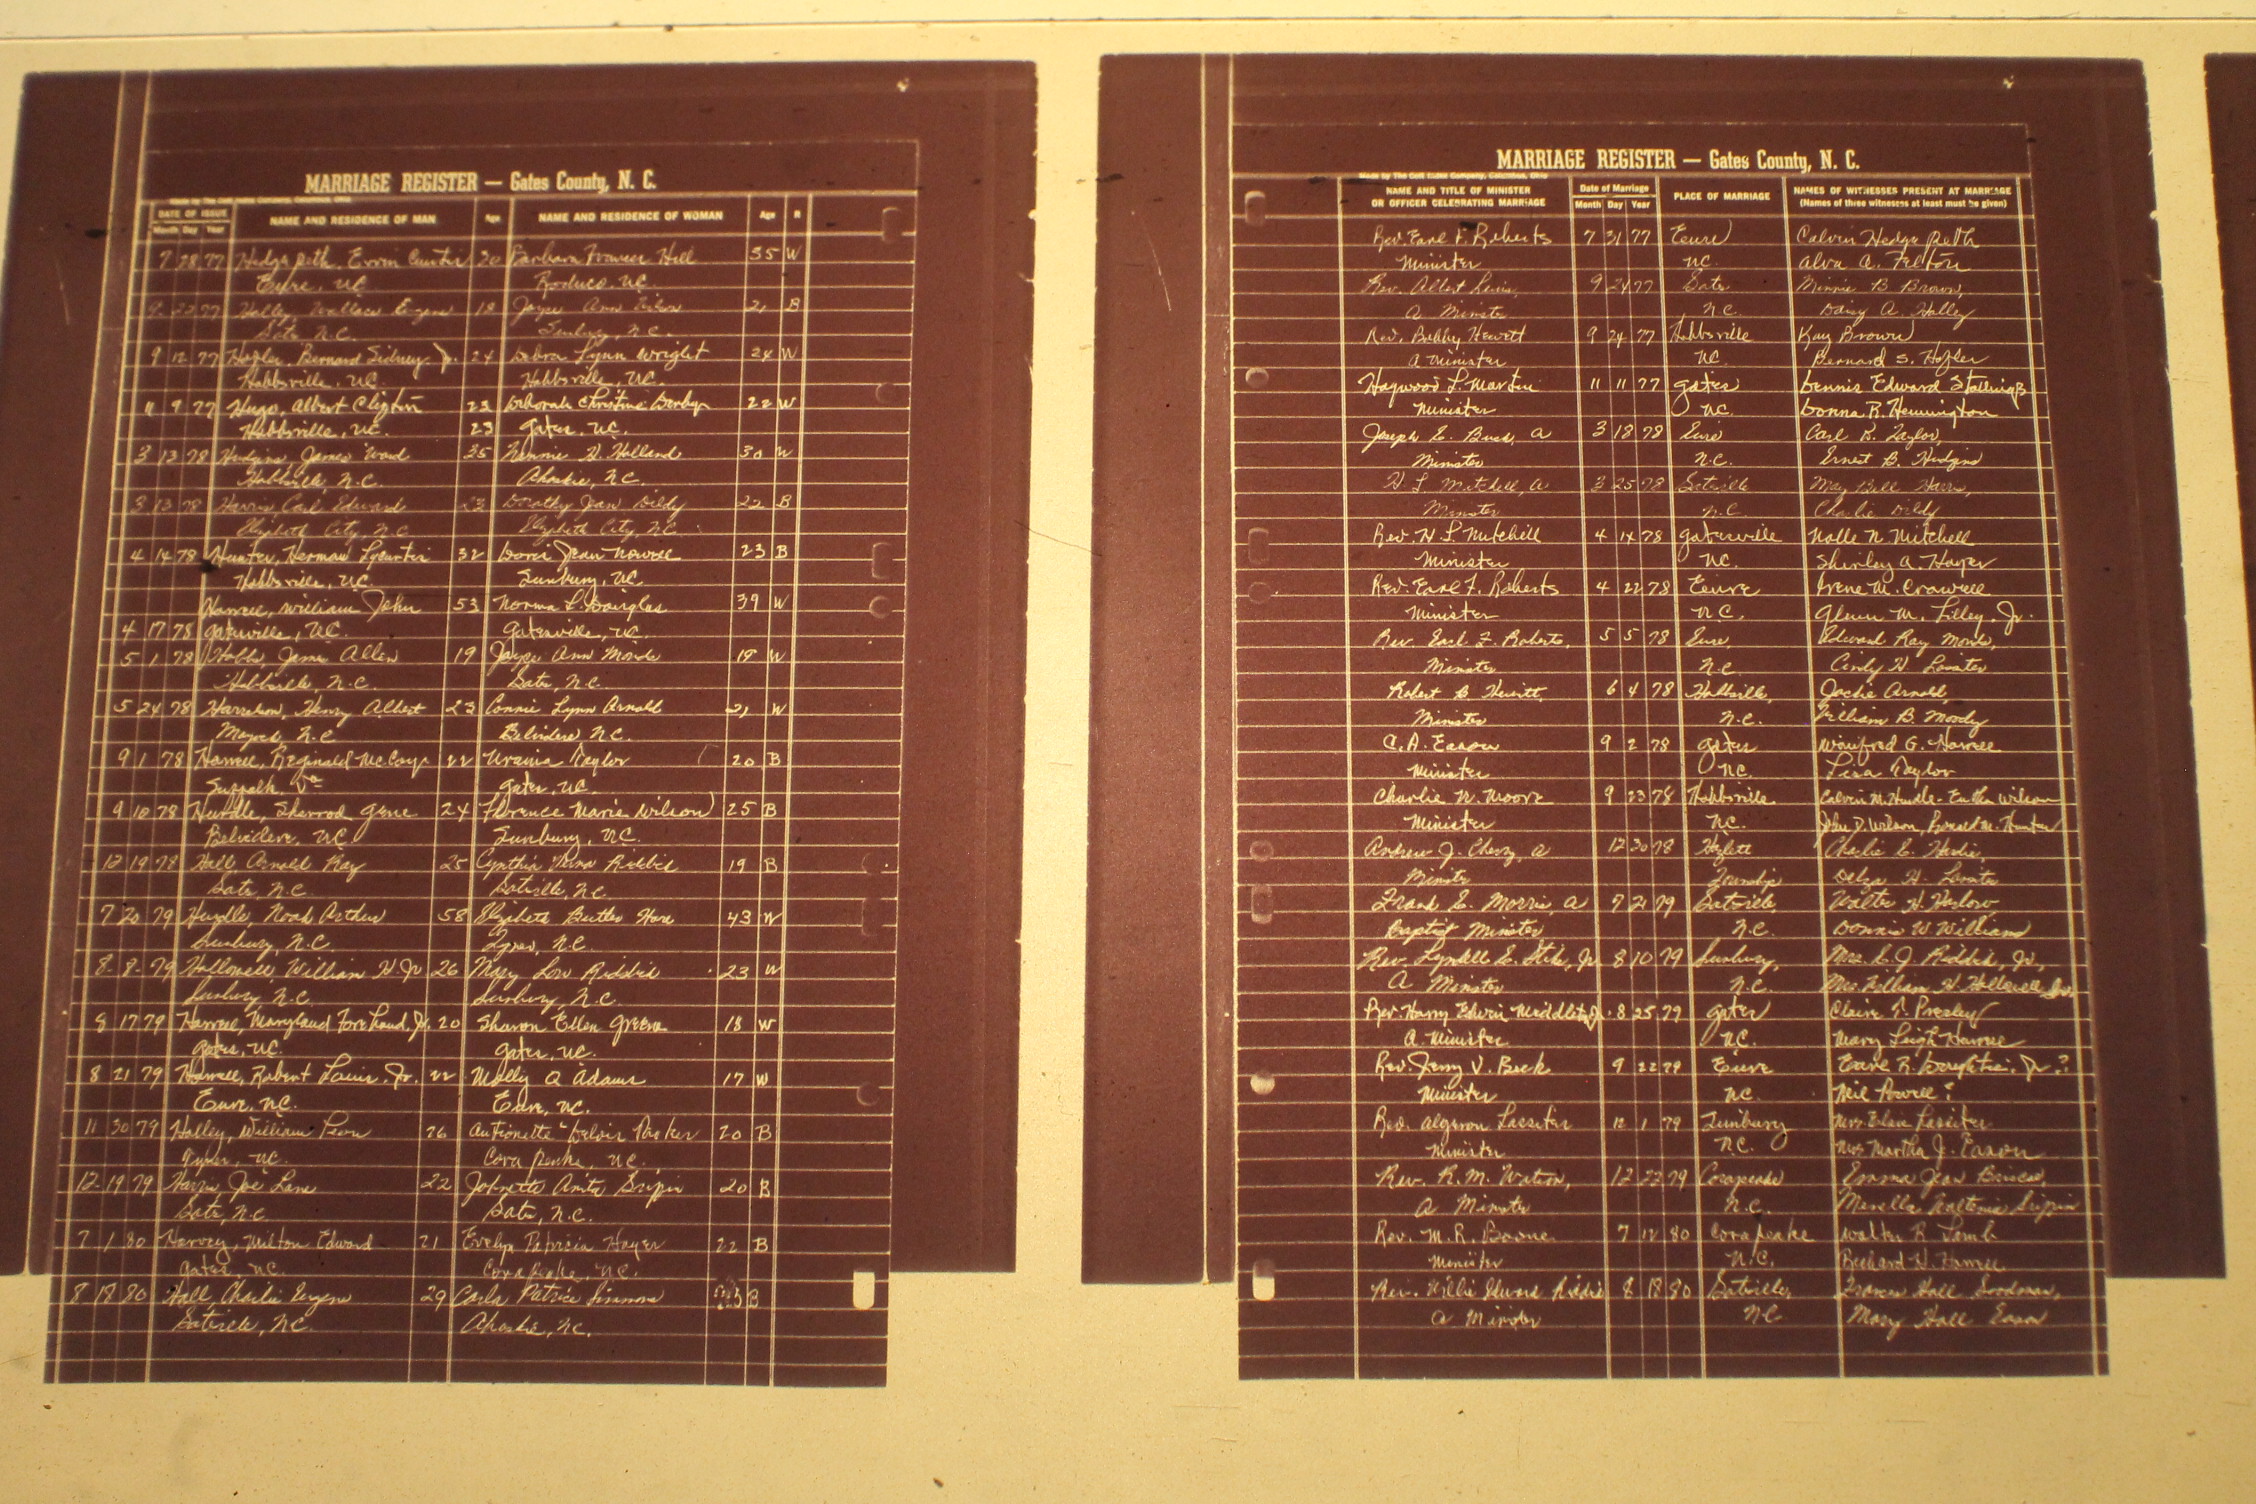 MARRIAGE REGISTER — Gates County, N. C.
DATE OF ISSUE
Month Day Year
NAME AND RESIDENCE OF MAN
Age
NAME AND RESIDENCE OF WOMAN
Age
R
7 28 77 Hedgepeth, Ervin Curtis 20 Barbara Frances Hill 35 W
Eure, NC Roduco, NC
9 22 77 Holley Wallace Eugene 18 Joyce Ann 21 B
Gates N.C. Sunbury, N.C.
9 12 77 Hofler, Bernard Sidney Jr. 24 Debra Lynn Wright 24 W
Hobbsville, NC. Hobbsville, NC.
11 9 77 Hugo, Albert Clifton 23 Deborah Christine 22 W
Hobbsville, NC. 23 Gates, NC.
3 13 78 Hudgins James Ward 35 H. Holland 30 W
Hobbsville, N.C. Ahoskie, N.C.
3 13 78 Harris Carl Edward 23 Dorothy Jean Dildy 22 B
Elizabeth City, N.C. Elizabeth City, N.C.
4 14 78 Hunter, Herman 32 Doris Jean Nowell 23 B
Hobbsville, NC. Sunbury, NC.
Harrell, William John 53 Norma L. Douglas 39 W
4 17 78 Gatesville, NC. Gatesville, NC.
5 1 78 Hobbs, James Allen 19 Joyce Ann 19 W
Hobbsville, N.C. Gates, N.C.
5 24 78 Harrelson, Henry Albert 23 Connie Lynn Arnold 21 W
Moyock, N.C. Belvidere N.C.
9 1 78 Harrell, Reginald McCoy 22 Urania Taylor 20 B
Suffolk, Va Gates, NC.
9 10 78 Hurdle, Sharrod Gene 24 Florence Marie Wilson 25 B
Belvidere, NC Sunbury, NC.
12 19 78 Hall Arnold Ray 25 Cynthia Riddick 19 B
Gates, N.C. Gatesville, N.C.
7 20 79 Hurdle, Noah Arthur 58 Elizabeth Butler 43 W
Sunbury, N.C. Tyner, N.C.
8-8-79 Hollowell, William H. Jr 26 Mary Lou Riddick 23 W
Sunbury N.C. Sunbury, N.C.
8 17 79 Harrell, Maryland Forehand, Jr. 20 Sharon Ellen Greene 18 W
Gates, NC. Gates, NC.
8 21 79 Harrell, Robert Louis, Jr. 22 Molly A Adams 17 W
Eure, NC. Eure, NC.
11 30 79 Holley, William Leon 26 Antionette Delois 20 B
Tyner, NC. Corapeake, NC.
12 19 79 Harris Joe Lane 22 Johnette Anita 20 B
Gates, N.C. Gates, N.C.
7 1 80 Harvey, Milton Edward 21 Evelyn Patricia 22 B
Gates, NC. Corapeake, NC.
8 18 80 Hall Charlie Eugene 29 Carla Patrice Simmons B
Gatesville, NC. Ahoskie, NC.
MARRIAGE REGISTER — Gates County, N. C.
NAME AND TITLE OF MINISTER
OR OFFICER CELEBRATING MARRIAGE
Date of Marriage
Month Day Year
PLACE OF MARRIAGE
NAMES OF WITNESSES PRESENT AT MARRIAGE
(Names of three witnesses at least must be given)
Rev. Earl F. Roberts 7 31 77 Eure Calvin Hedgepeth
Minister NC. Alva A. Felton
Rev. Albert Lewis, 9 24 77 Gates Minnie B Brown,
A Minister N.C. Daisy A. Holley
Rev. Bobby Hewett 9 24 77 Hobbsville Kay Brown
A Minister NC. Bernard S. Hofler
Haywood L. Martin 11 11 77 Gates Dennis Edward Stallings
Minister NC. Donna R. Hennington
Joseph E. Bush, A 3 18 78 Eure Carl R. Taylor,
Minister N.C. Ernest B. Hudgins
H L Mitchell, A 3 25 78 Gatesville May Bell Harris,
Minister N.C Charlie Dildy
Rev H L Mitchell 4 14 78 Gatesville N Mitchell
Minister NC. Shirley A.
Rev. Earl F. Roberts 4 22 78 Eure Irene M. Crowell
Minister N.C. Glenn M. Lilley, Jr.
Rev. Earl F. Roberts, 5 5 78 Eure, Edward Ray
Minister N.C Cindy H Lassiter
Robert B Hewitt, 6 4 78 Hobbsville, Jackie Arnold,
Minister N.C. William B. Moody
C. A. Eason 9 2 78 Gates Winifred G. Harrell
Minister NC. Lisa Taylor
Charlie W. Moore 9 23 78 Hobbsville Calvin M. Hurdle - Wilson
Minister NC. John D. Wilson, Ronald M. Hunter
Andrew J. Cherry, A 12 30 78 Haslett Charlie E.
Minister Township H.
Frank E. Morris, A 7 21 79 Gatesville, Walter H Haslow
Baptist Minister N.C. Donnie W William
Rev. Lyndell E. Jr 8 10 79 Sunbury, Mrs. E. J. Riddick, Jr.,
A Minister N.C. Mrs. William H. Hollowell Sr.
Rev Harry Edwin Middleton Jr. 8 25 79 Gates Claire T. Presley
A. Minister N.C. Mary Leigh Harrell
Rev. Jerry V. Beck 9 22 79 Eure Earl R. Doughtie, Jr.?
Minister NC. Neil Powell?
Rev. Algeron Lassiter 12 1 79 Sunbury Mrs. Elsie Lassiter
Minister N.C. Mrs Martha J. Eason
Rev. R. M. Watson, 12 22 79 Corapeake Emma Jean
A Minister N.C.
Rev. M. R. Boone 7 12 80 Corapeake Walter R Lamb
Minister N.C. Richard H. Harrell
Rev. Willie Edward Riddick 8 18 80 Gatesville, Hall Goodman,
A Minister NC Mary Hall Eason